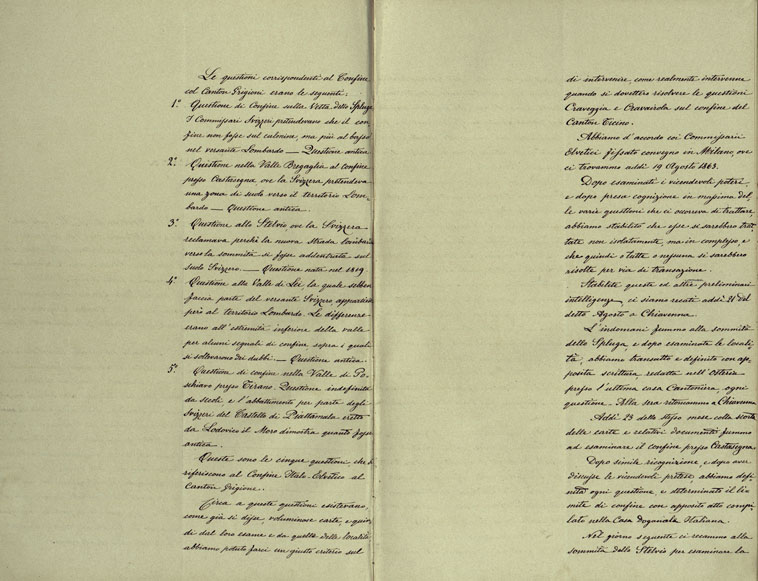 Le questioni corrispondenti al Confine
col Canton Grigioni erano le seguenti:
1.° Questione di Confine sulla Vetta dello Spluga
I Commissari Svizzeri pretendevano che il con
fine non fosse sul culmine, ma più al basso
nel versante Lombardo — Questione antica
2.° Questione nella Valle Bregaglia al confine
presso Castasegna, ove la Svizzera pretendeva
una zona di suolo verso il territorio Lom-
bardo — Questione antica.
3.° Questione allo Stelvio ove la Svizzera
reclamava perchè la nuova strada Lombarda
verso la sommità si fosse addentrata sul
suolo Svizzero. — Questione nata nel 1819
4.° Questione alla Valle di Lei, la quale sebben
faccia parte del versante Svizzero appartiene
però al territorio Lombardo. Le differenze
erano all'estremità inferiore della valle
per alcuni segnali di confine sopra i quali
si sollevarono dei dubbi. — Questione antica.
5.° Questione di confine nella Valle di Po-
schiavo presso Tirano. Questione indefinita
da secoli e l'abbattimento per parte degli
Svizzeri del Castello di Piattamala eretto
da Lodovico il Moro dimostra quanto fosse
antica.
Queste sono le cinque questioni che si
riferiscono al Confine Italo-Elvetico al
Canton Grigione.
Circa a queste questioni esistevano,
come già si disse, voluminose carte, e quin
di dal loro esame e da quello delle località
abbiamo potuto farci un giusto criterio sul
di intervenire, come realmente intervenne
quando si dovettero risolvere le questioni
Craveggia e Cravairola sul confine del
Canton Ticino.
Abbiamo d'accordo coi Commissari
Elvetici fissato convegno in Milano, ove
ci trovammo addì 19 Agosto 1863.
Dopo esaminati i vicendevoli poteri
e dopo presa cognizione in massima del,
le varie questioni che ci occorreva di trattare
abbiamo stabilito che esse si sarebbero trat,
tate non isolatamente, ma in complesso, e
che quindi o tutte o nessuna si sarebbero
risolte per via di transazione.
Stabilite queste ed altre preliminari
intelligenze, ci siamo recati addì 21 del
detto Agosto a Chiavenna.
L'indomani fummo alla sommità
dello Spluga, e dopo esaminate le locali,
tà, abbiamo transatta e definita con ap,
posita scrittura, redatta nell'Osteria
presso l'ultima casa Cantoniera, ogni
questione. Alla sera ritornammo a Chiavenna
Addì 23 dello stesso mese colla scorta
delle carte e relativi documenti fummo
ad esaminare il confine presso Castasegna.
Dopo simile ricognizione, e dopo aver
discusse le vicendevoli pretese, abbiamo defi,
nita ogni questione, e determinato il li,
mite di confine con apposito atto compi,
lato nella Casa doganale Italiana.
Nel giorno seguente ci recammo alla
sommità dello Stelvio per esaminare la